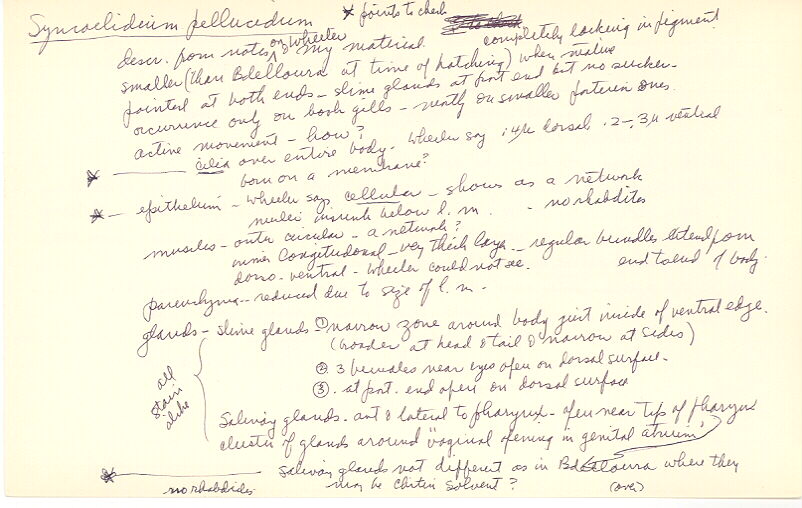 Syncoelidium pellucidum * points to check
descr. from notes on Wheeler & my material. completely lacking in pigment
smaller (than Bdelloura at time of hatching) when mature
pointed at both ends - slime glands at post end but no sucker -
occurrence only on book gills - mostly on smaller posterior ones.
active movement - how?
* cilia over entire body - Wheeler say .4μ dorsal .2-.3μ ventral
born on a membrane?
* - epithelium - Wheeler says cellular - shows as a network
nuclei below l. m. - no rhabdites
muscles - outer circular - a network?
inner longitudinal - very thick layer - regular bundles extend from
dorso-ventral - Wheeler could not see. end to end of body.
parenchyma - reduced due to size of l. m.
glands - slime glands ① narrow zone around body just inside of ventral edge.
(broader at head & tail & narrow at sides)
② 3 bundles near eyes open on dorsal surface.
③ at post. end open on dorsal surface
all stain alike
Salivary glands - ant & lateral to pharynx - open near tip of pharynx
cluster of glands around "vaginal opening" in genital atrium
* salivary glands not different as in Bdelloura where they
no rhabdides may be chitin solvent? (over)